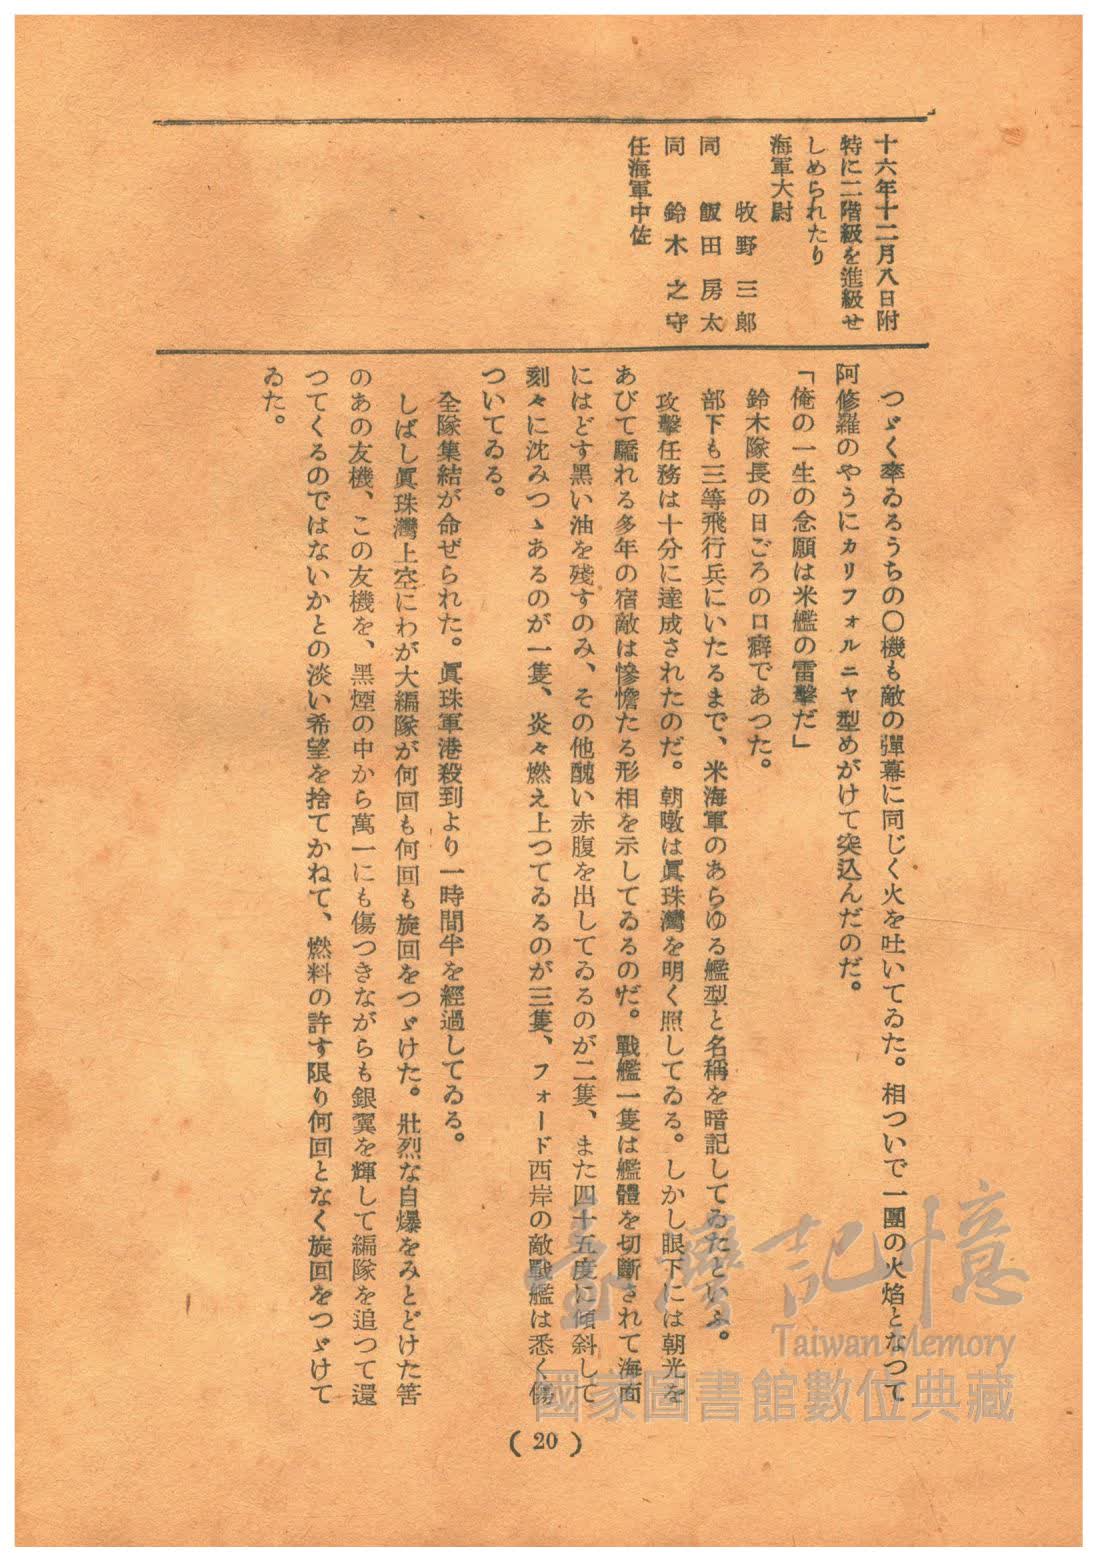 十六年十二月八日附
特に二階級を進級せ
しめられたり
海軍大尉
牧野三郎
同 飯田房太
同 鈴木之守
任海軍中佐
つゞく率ゐるうちの〇機も敵の彈幕に同じく火を吐いてゐた。相ついで一團の火焰となつて
阿修羅のやうにカリフォルニヤ型めがけて突込んだのだ。
「俺の一生の念願は米艦の雷擊だ」
鈴木隊長の日ごろの口癖であつた。
部下も三等飛行兵にいたるまで、米海軍のあらゆる艦型と名稱を暗記してゐたといふ。
攻擊任務は十分に達成されたのだ。朝暾は眞珠灣を明く照してゐる。しかし眼下には朝光を
あびて驕れる多年の宿敵は慘憺たる形相を示してゐるのだ。戰艦一隻は艦體を切斷されて海面
にはどす黑い油を殘すのみ、その他醜い赤腹を出してゐるのが二隻、また四十五度に傾斜して
刻々に沈みつゝあるのが一隻、炎々燃え上つてゐるのが三隻、フォード西岸の敵戰艦は悉く傷
ついてゐる。
全隊集結が命ぜられた。眞珠軍港殺到より一時間半を經過してゐる。
しばし眞珠灣上空にわが大編隊が何回も何回も旋回をつゞけた。壯烈な自爆をみとどけた筈
のあの友機、この友機を、黑煙の中から萬一にも傷つきながらも銀翼を輝して編隊を追つて還
つてくるのではないかとの淡い希望を捨てかねて、燃料の許す限り何回となく旋回をつゞけて
ゐた。
(20)
臺灣記憶
Taiwan Memory
國家圖書館數位典藏